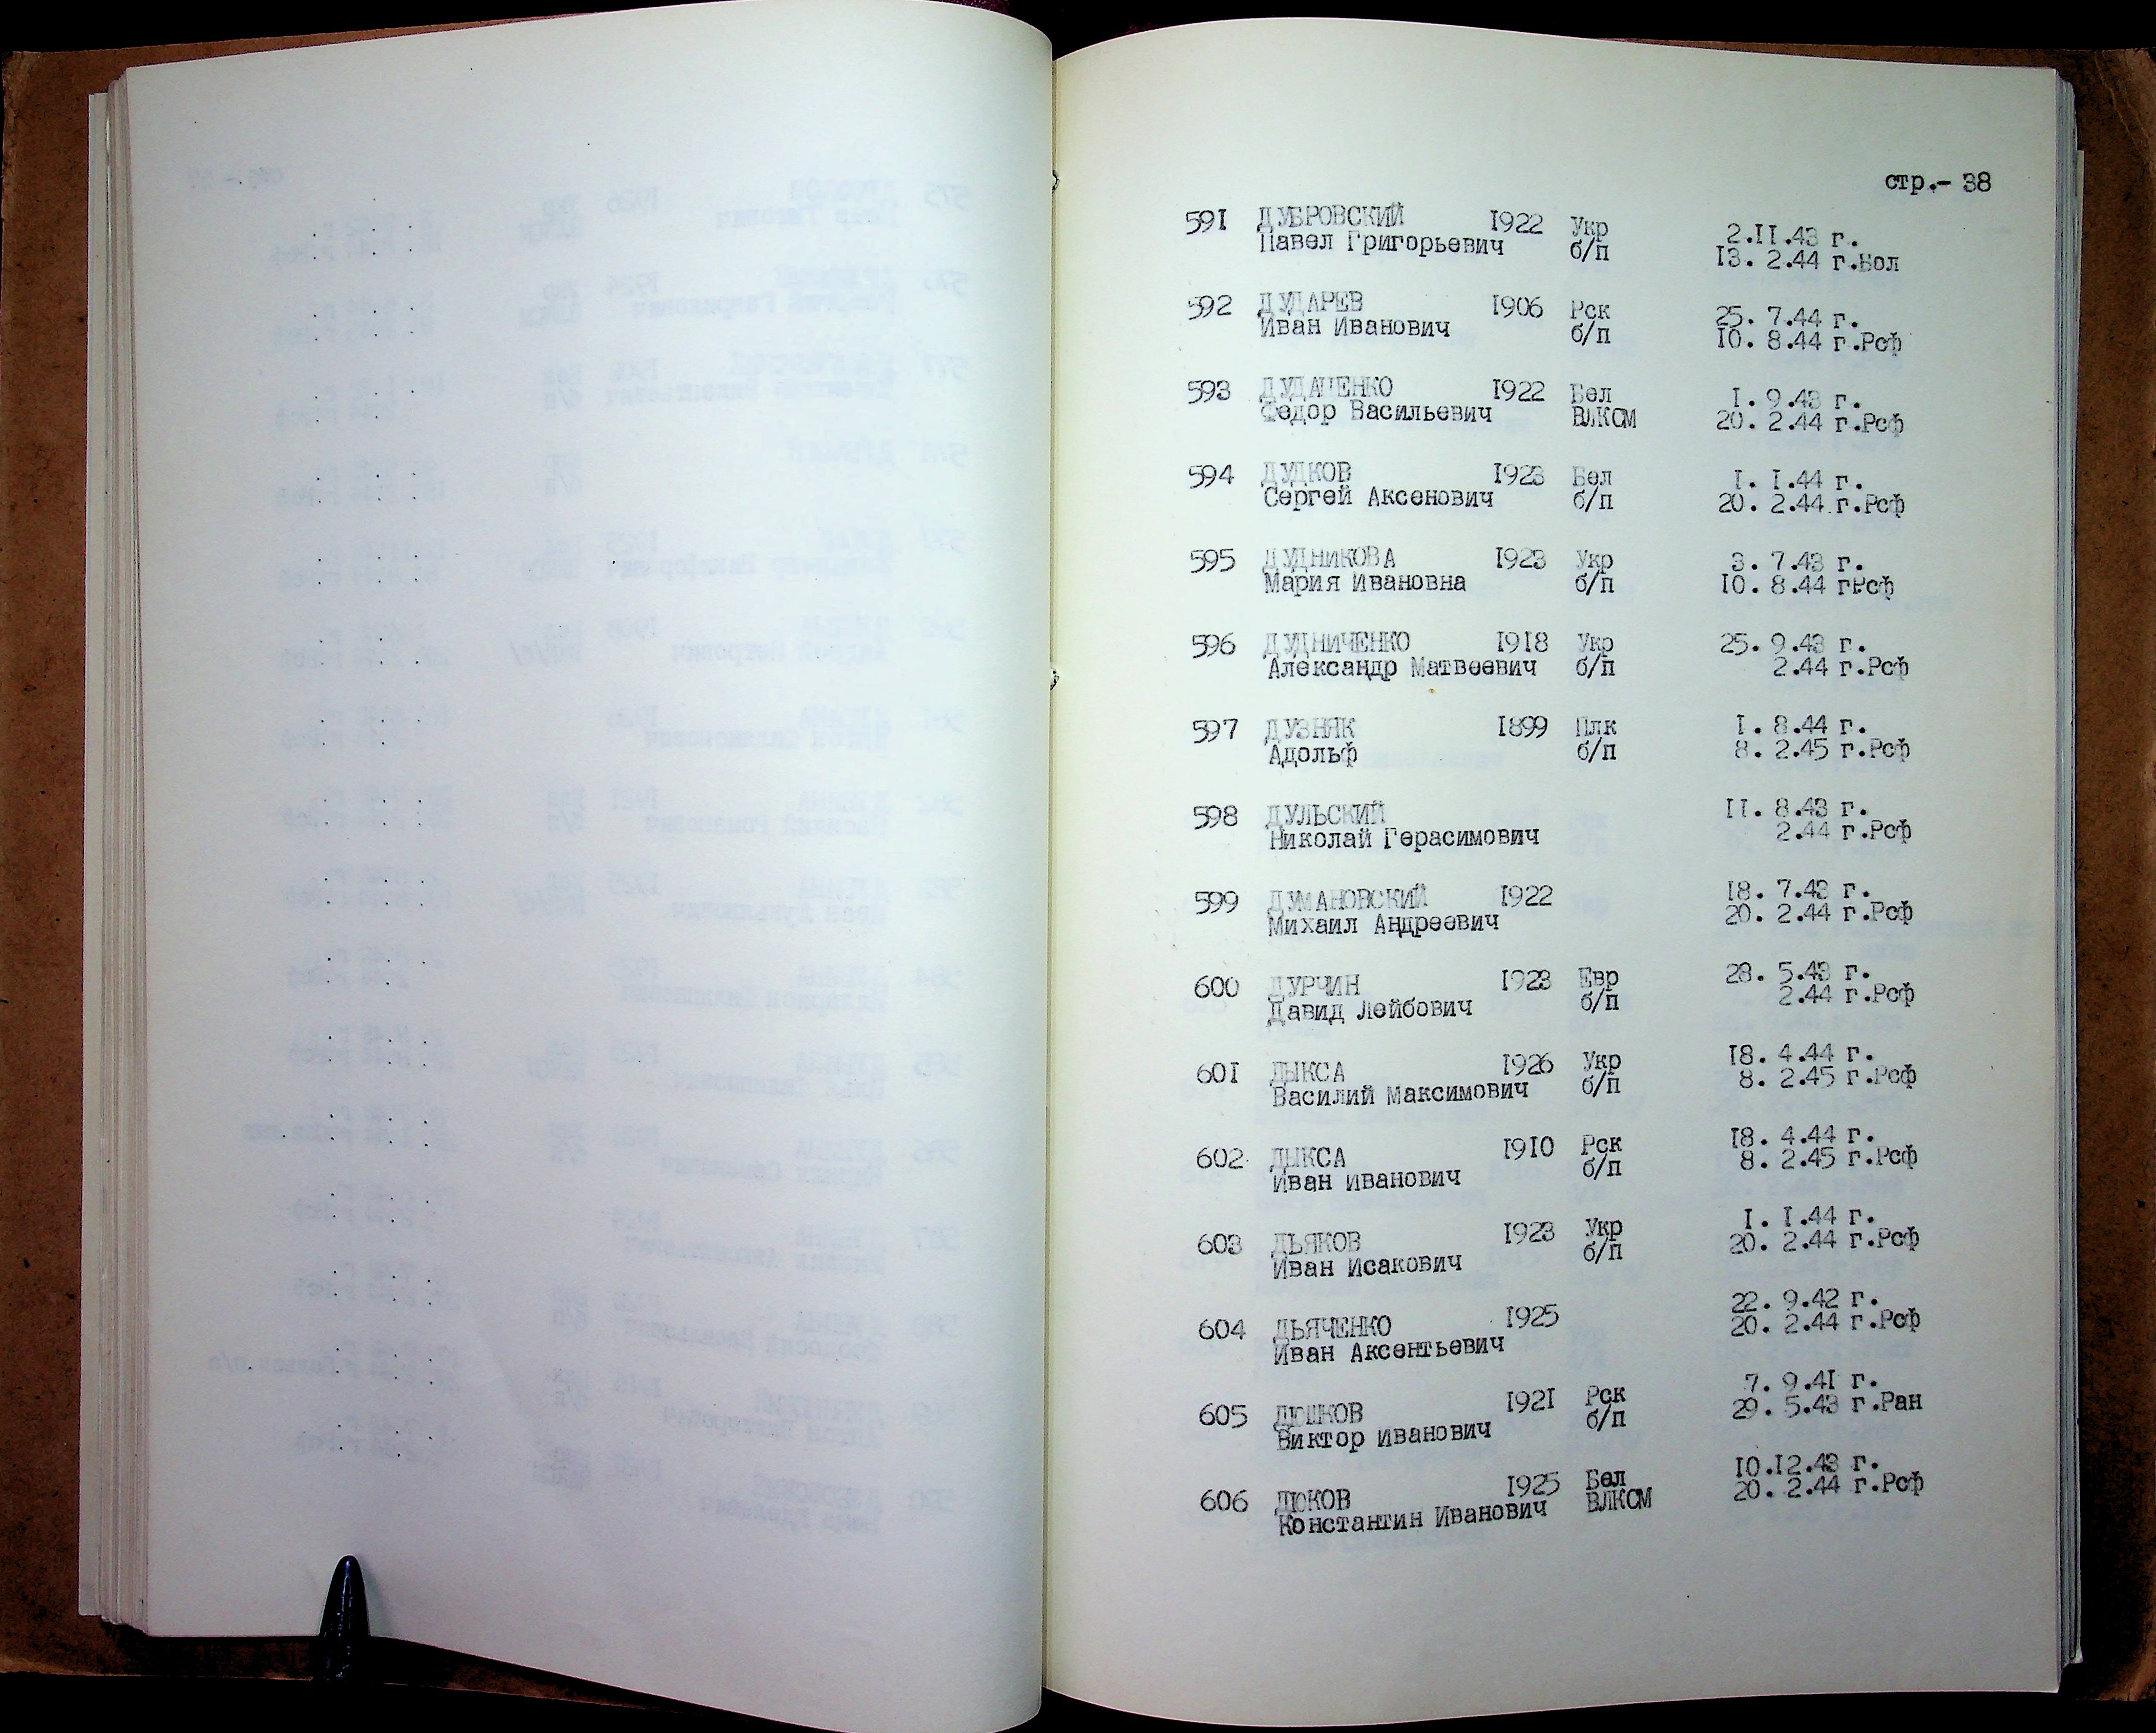 стр.- 38
591 ДУБРОВСКИЙ 1922 Укр 2.II.43 г.
Павел Григорьевич б/п I3. 2.44 г.Бол
592 ДУДАРЕВ I906 Рск 25. 7.44 г.
Иван Иванович б/п I0. 8.44 г.Рсф
593 ДУДАЦЕНКО I922 Бел I. 9.43 г.
Федор Васильевич ВЛКСМ 20. 2.44 г.Рсф
594 ДУДКОВ I923 Бел I. I.44 г.
Сергей Аксенович б/п 20. 2.44 г.Рсф
595 ДУДНИКОВА I923 Укр 3. 7.43 г.
Мария Ивановна б/п I0. 8.44 гРсф
596 ДУДНИЧЕНКО I9I8 Укр 25. 9.43 г.
Александр Матвеевич б/п 2.44 г.Рсф
597 ДУЗНЯК I899 Плк I. 8.44 г.
Адольф б/п 8. 2.45 г.Рсф
598 ДУЛЬСКИЙ II. 8.43 г.
Николай Герасимович 2.44 г.Рсф
599 ДУМАНОВСКИЙ I922 I8. 7.43 г.
Михаил Андреевич 20. 2.44 г.Рсф
600 ДУРЧИН I923 Евр 28. 5.43 г.
Давид Лейбович б/п 2.44 г.Рсф
60I ДЫКСА I926 Укр I8. 4.44 г.
Василий Максимович б/п 8. 2.45 г.Рсф
602 ДЫКСА I9I0 Рск I8. 4.44 г.
Иван Иванович б/п 8. 2.45 г.Рсф
603 ДЬЯКОВ I923 Укр I. I.44 г.
Иван Исакович б/п 20. 2.44 г.Рсф
604 ДЬЯЧЕНКО I925 22. 9.42 г.
Иван Аксентьевич 20. 2.44 г.Рсф
605 ДЮШКОВ I92I Рск 7. 9.4I г.
Виктор Иванович б/п 29. 5.43 г.Ран
606 ДЮКОВ I925 Бел I0.I2.43 г.
Константин Иванович ВЛКСМ 20. 2.44 г.Рсф